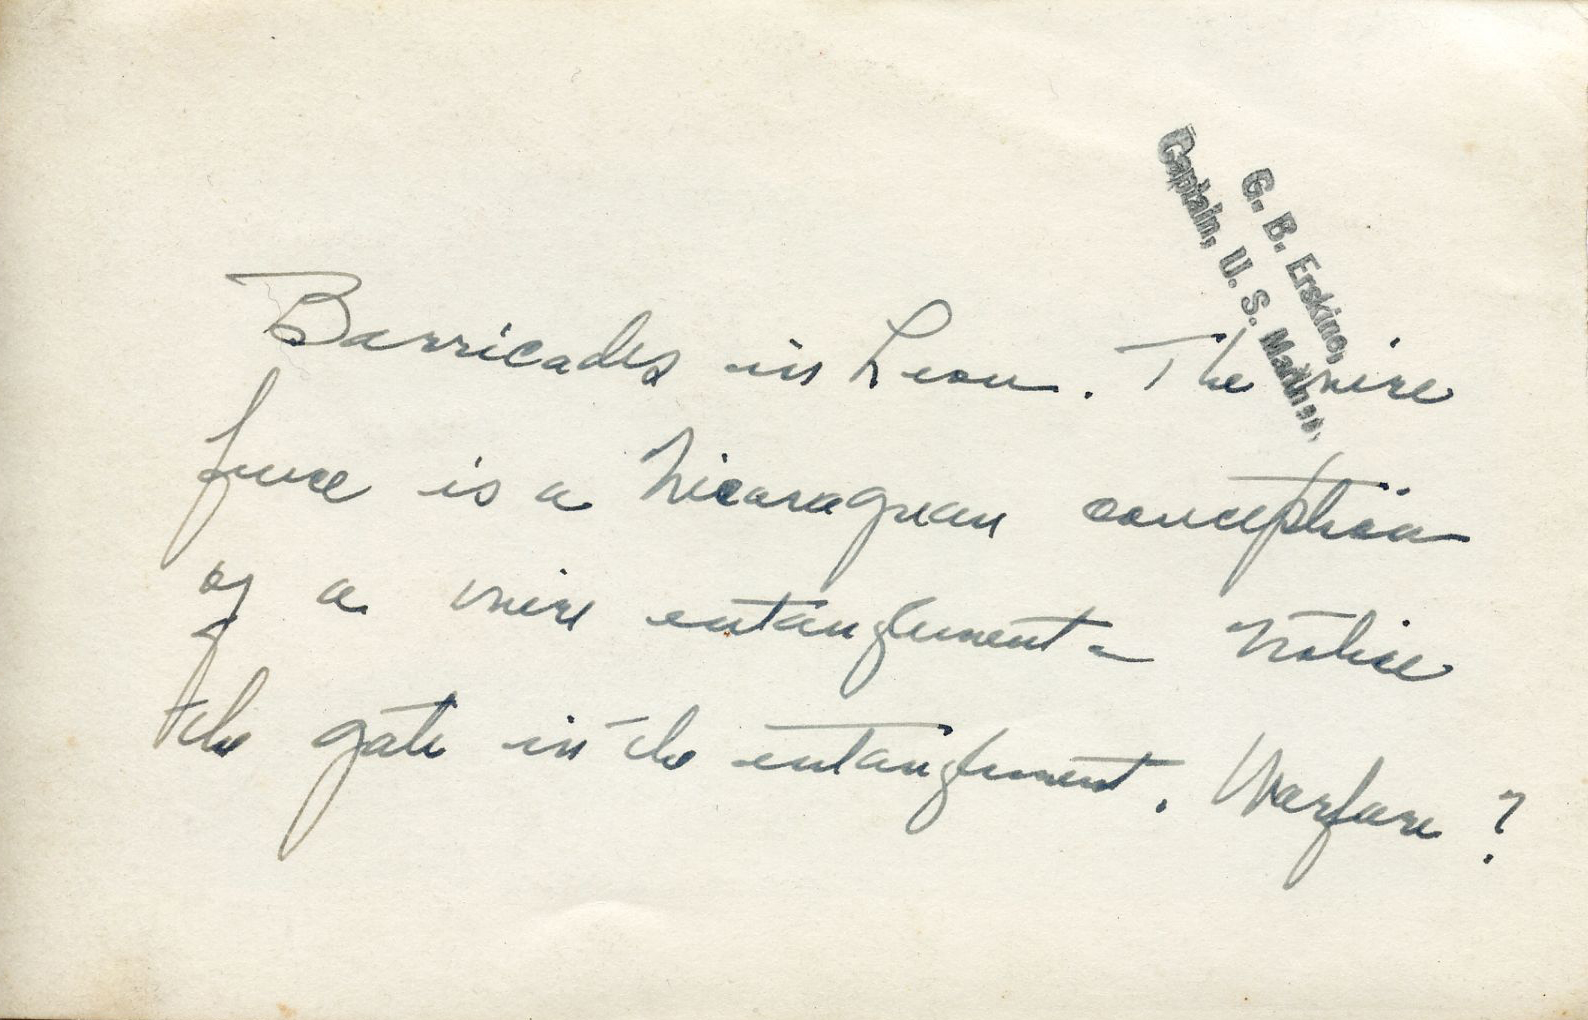 G. B. Erskine,
Captain, U. S. Marines,
Barricades in Leon. The wire
fence is a Nicaraguan conception
of a wire entanglement - Notice
the gate in the entanglement. Warfare?